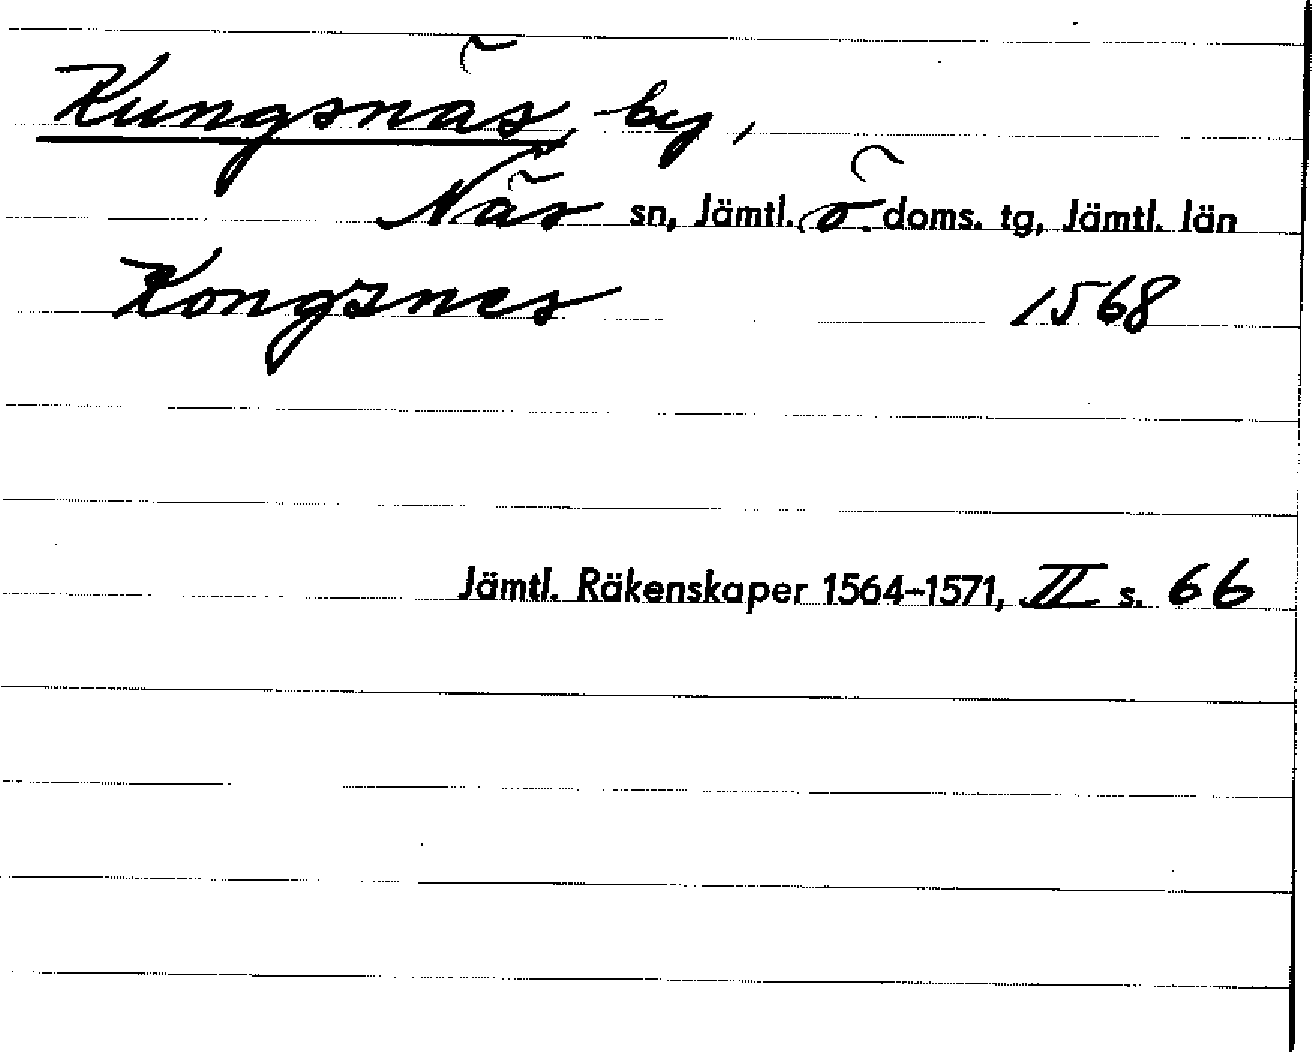 Kungsnäs, by,
Näs sn, Jämtl. ö. doms. tg, Jämtl. län
Kongsnes 1568
Jämtl. Räkenskaper 1564-1571, II s. 66